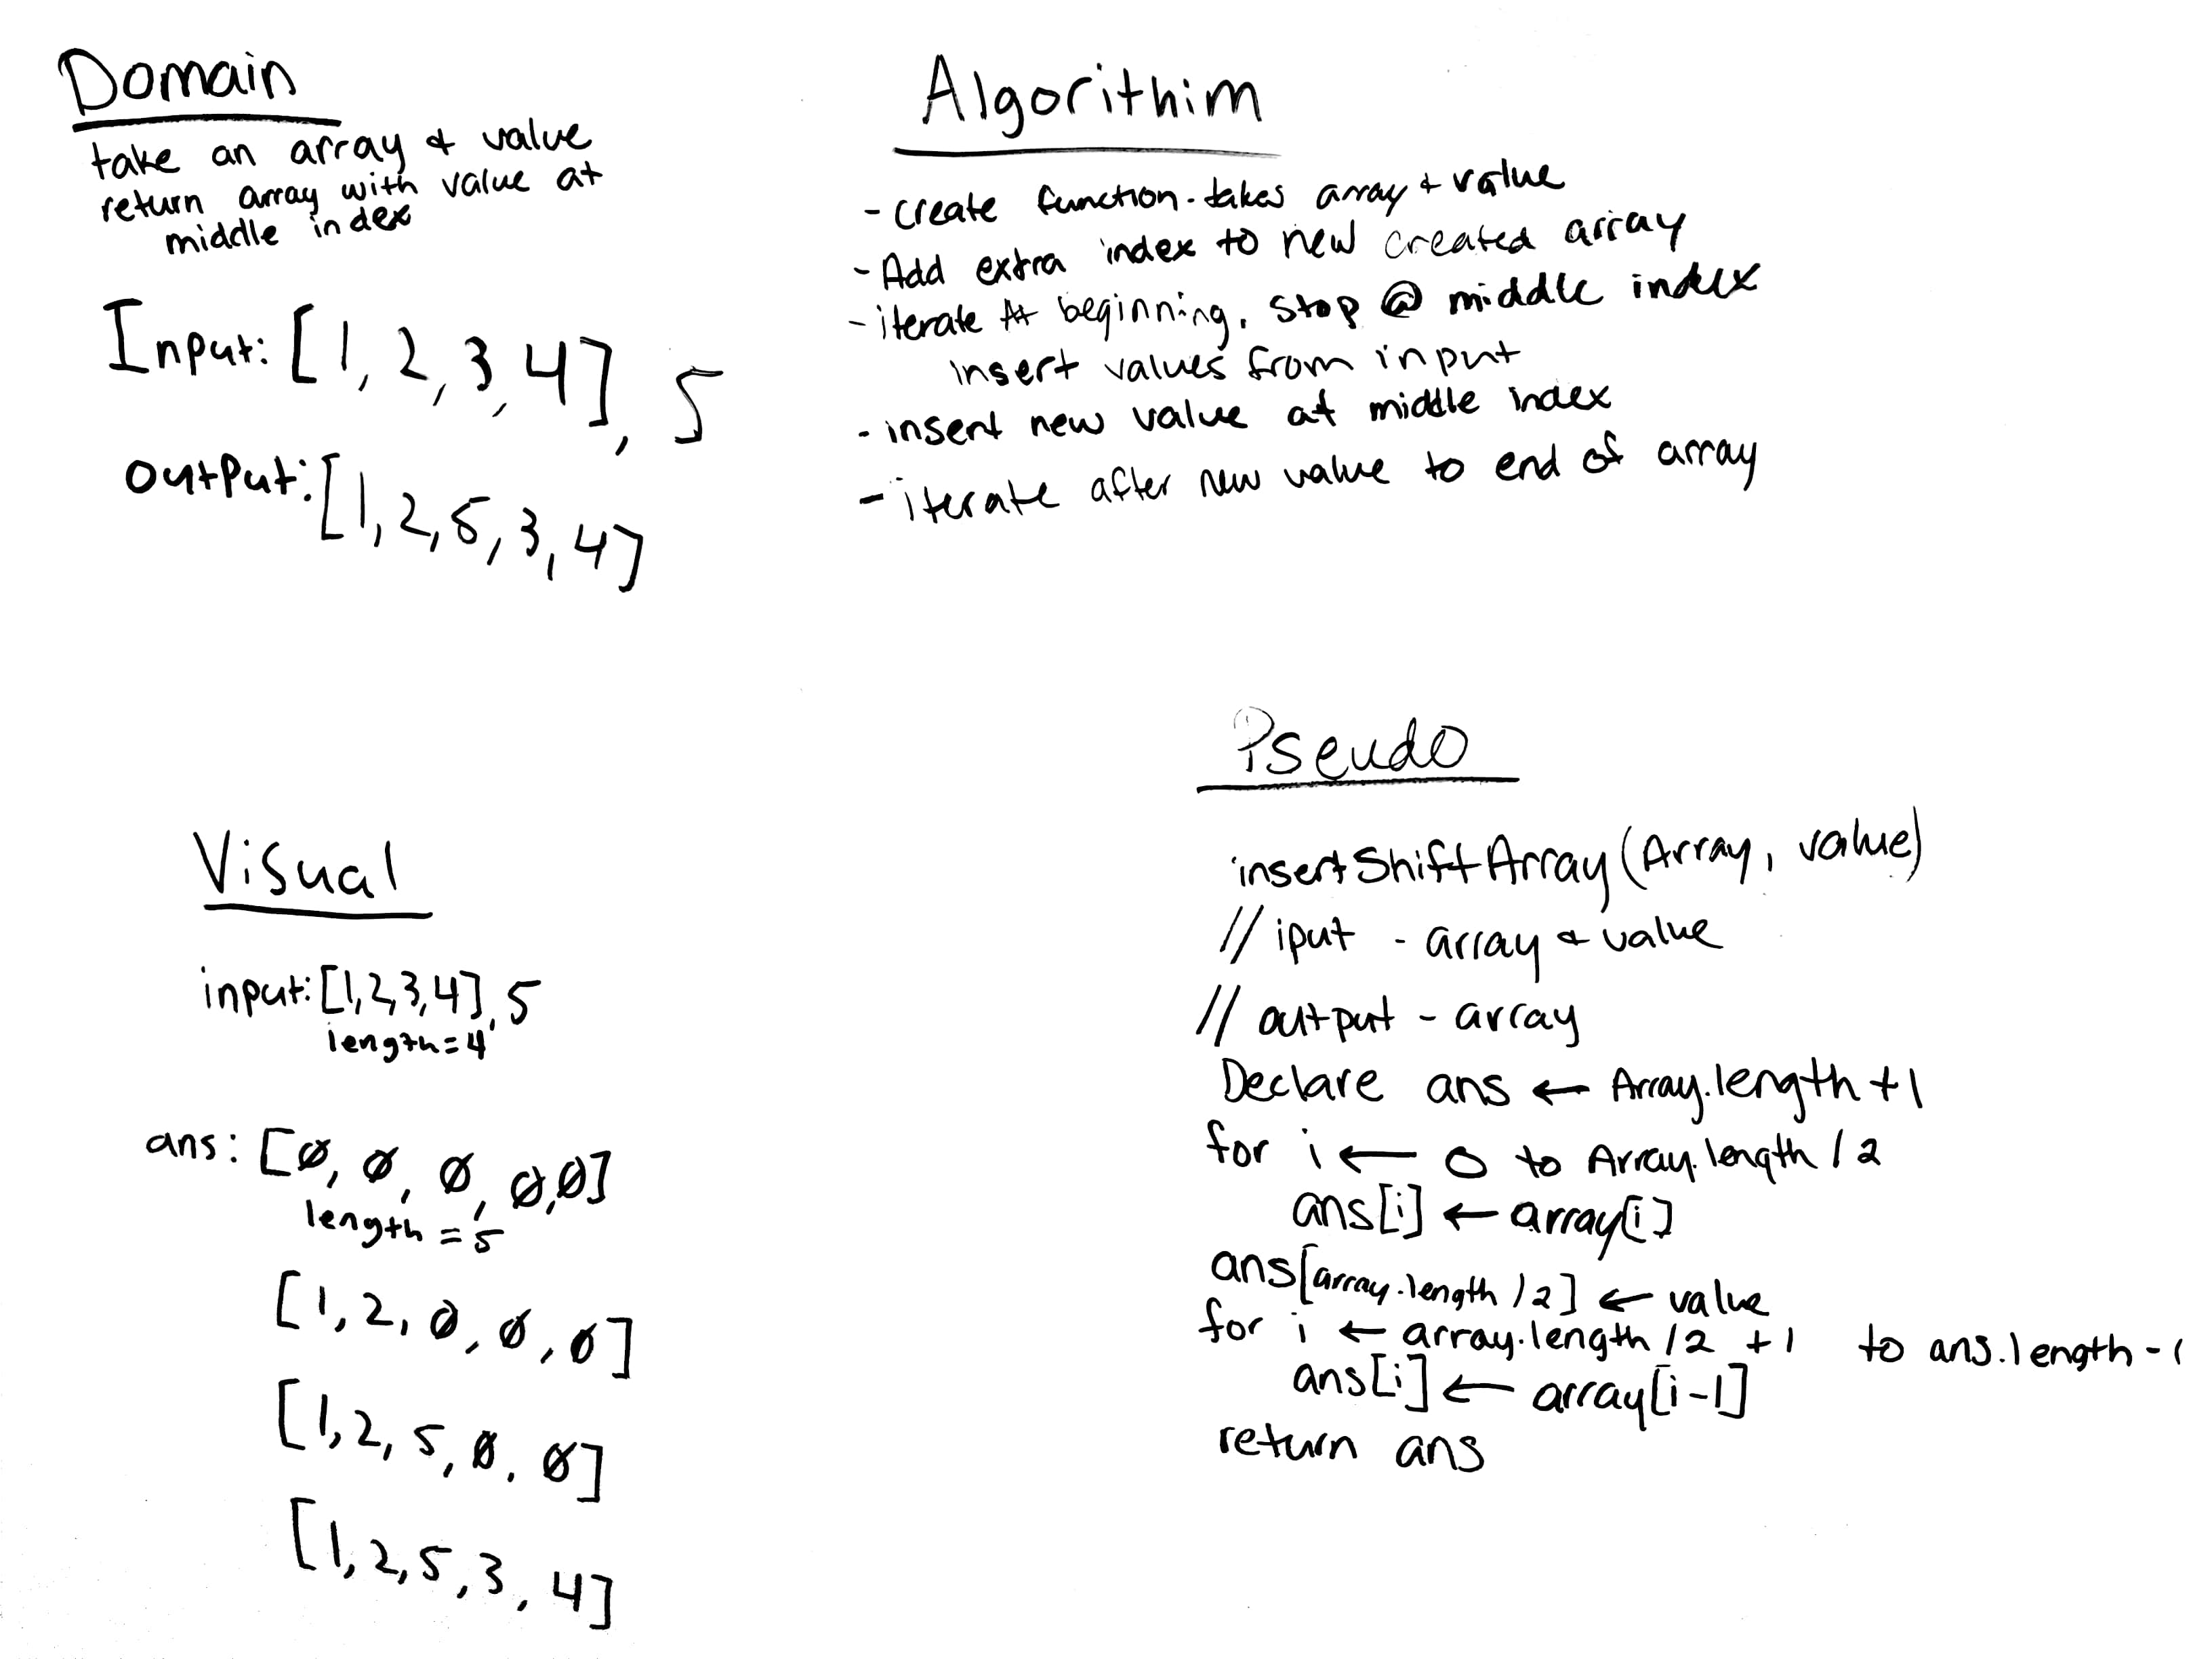 Domain
take an array & value
return array with value at
middle index
Input: [1, 2, 3, 4], 5
output: [1, 2, 5, 3, 4]
Algorithim
- create function - takes array & value
- Add extra index to new created array
- iterate At beginning, stop @ middle index
insert values from input
- insert new value at middle index
- iterate after new value to end of array
Visual
input: [1, 2, 3, 4], 5
length = 4
ans: [Ø, Ø, Ø, Ø, Ø]
length = 5
[1, 2, Ø, Ø, Ø]
[1, 2, 5, Ø, Ø]
[1, 2, 5, 3, 4]
Pseudo
insertShiftArray (Array, value)
// iput - array & value
// output - array
Declare ans ← Array.length + 1
for i ← 0 to Array.length / 2
ans[i] ← array[i]
ans[array.length / 2] ← value
for i ← array.length / 2 + 1 to ans.length - 1
ans[i] ← array[i-1]
return ans